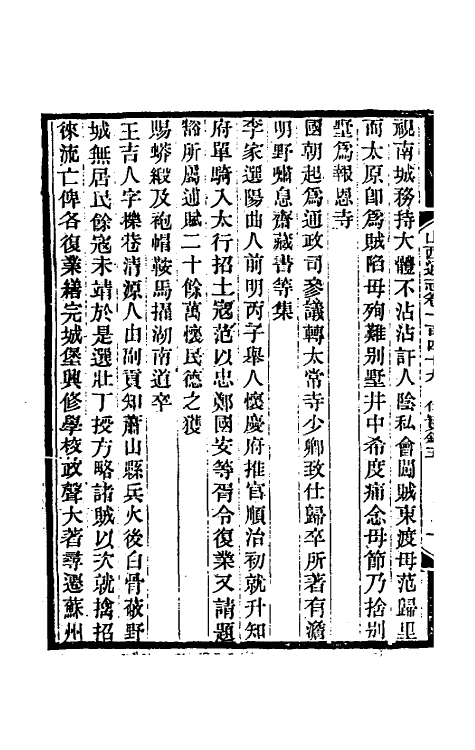 視南城務持大體不沾沾訐人陰私會闖賊東渡母范歸里
而太原卽爲賊陷母殉難别墅井中希度痛念母節乃捨别
墅爲報恩寺
國朝起爲通政司參議轉太常寺少卿致仕歸卒所著有澹
明野嘯息齋藏書等集
李家選陽曲人前明丙子舉人懷慶府推官順治初就升知
府單騎入太行招土寇范以忠鄭國安等胥令復業又請題
豁所屬逋賦二十餘萬懷民德之獲
賜蟒緞及袍帽鞍馬擢湖南道卒
王吉人字櫟巷清源人由副貢知蕭山縣兵火後白骨蔽野
城無居民餘寇未靖於是選壯丁授方略諸賊以次就擒招
徠流亡俾各復業繕完城堡興修學校政聲大著尋遷蘇州
山西通志卷一百四十九